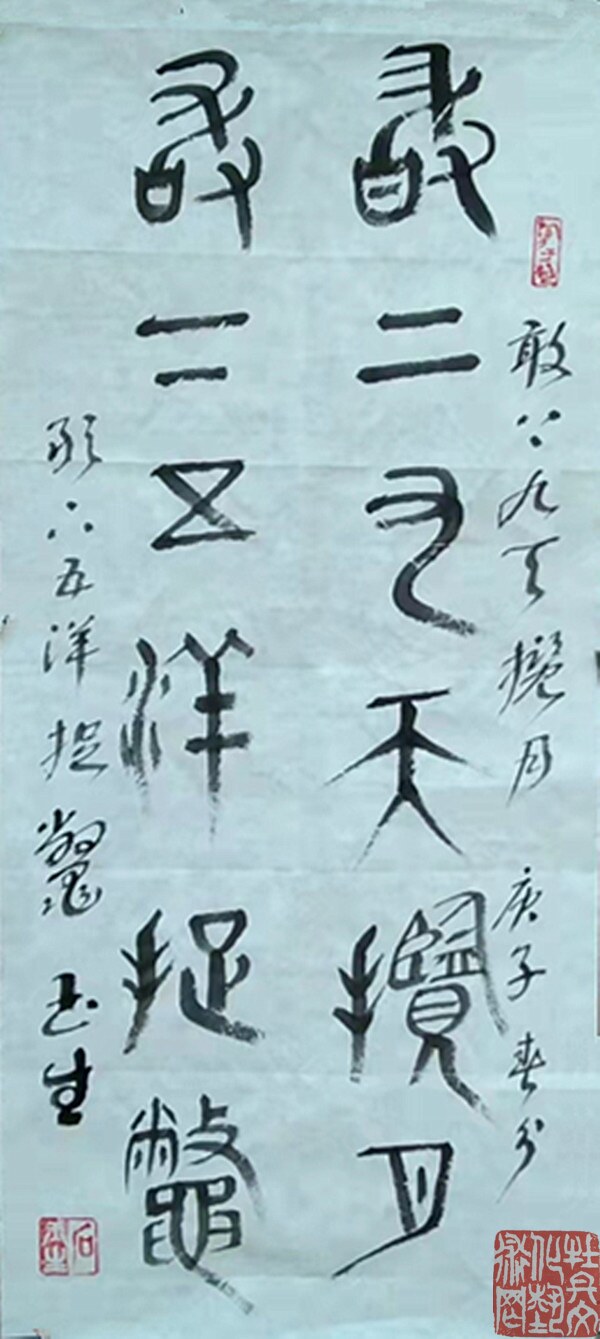 敢上九天攬月 庚子春分
敢上九天攬月
敢下五洋捉鼈
敢下五洋捉鼈